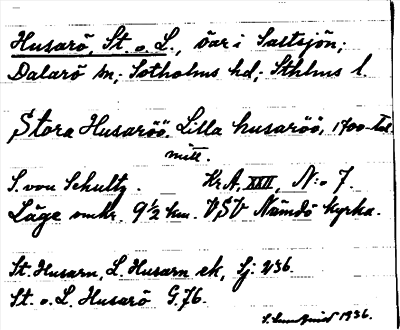 Husarö, St. o. L., öar i Saltsjön;
Dalarö sn; Sotholms hd; Sthlms l.
Stora Husaröö. Lilla husaröö, 1700-tal
mitt.
S. von Schultz. Kr.A. XXII, N:o 7.
Läge omkr. 9½ km. VSV Nämdö kyrka.
St. Husarn, L. Husarn ek, Sj 236.
St. o. L. Husarö G. 76.
1936.